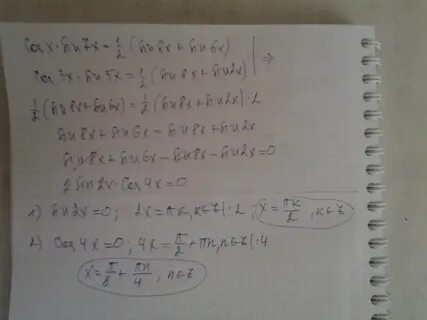 Cos x · Sin 7x = 1/2 (Sin 8x + Sin 6x)
Cos 3x · Sin 5x = 1/2 (Sin 8x + Sin 2x) | ⇒
1/2 (Sin 8x + Sin 6x) = 1/2 (Sin 8x + Sin 2x) · 2
Sin 8x + Sin 6x = Sin 8x + Sin 2x
Sin 8x + Sin 6x - Sin 8x - Sin 2x = 0
2 Sin 2x · Cos 4x = 0
1) Sin 2x = 0; 2x = πk, k∈Z |: 2; x = πk/2, k∈Z
2) Cos 4x = 0; 4x = π/2 + πn, n∈Z |: 4
x = π/8 + πn/4, n∈Z